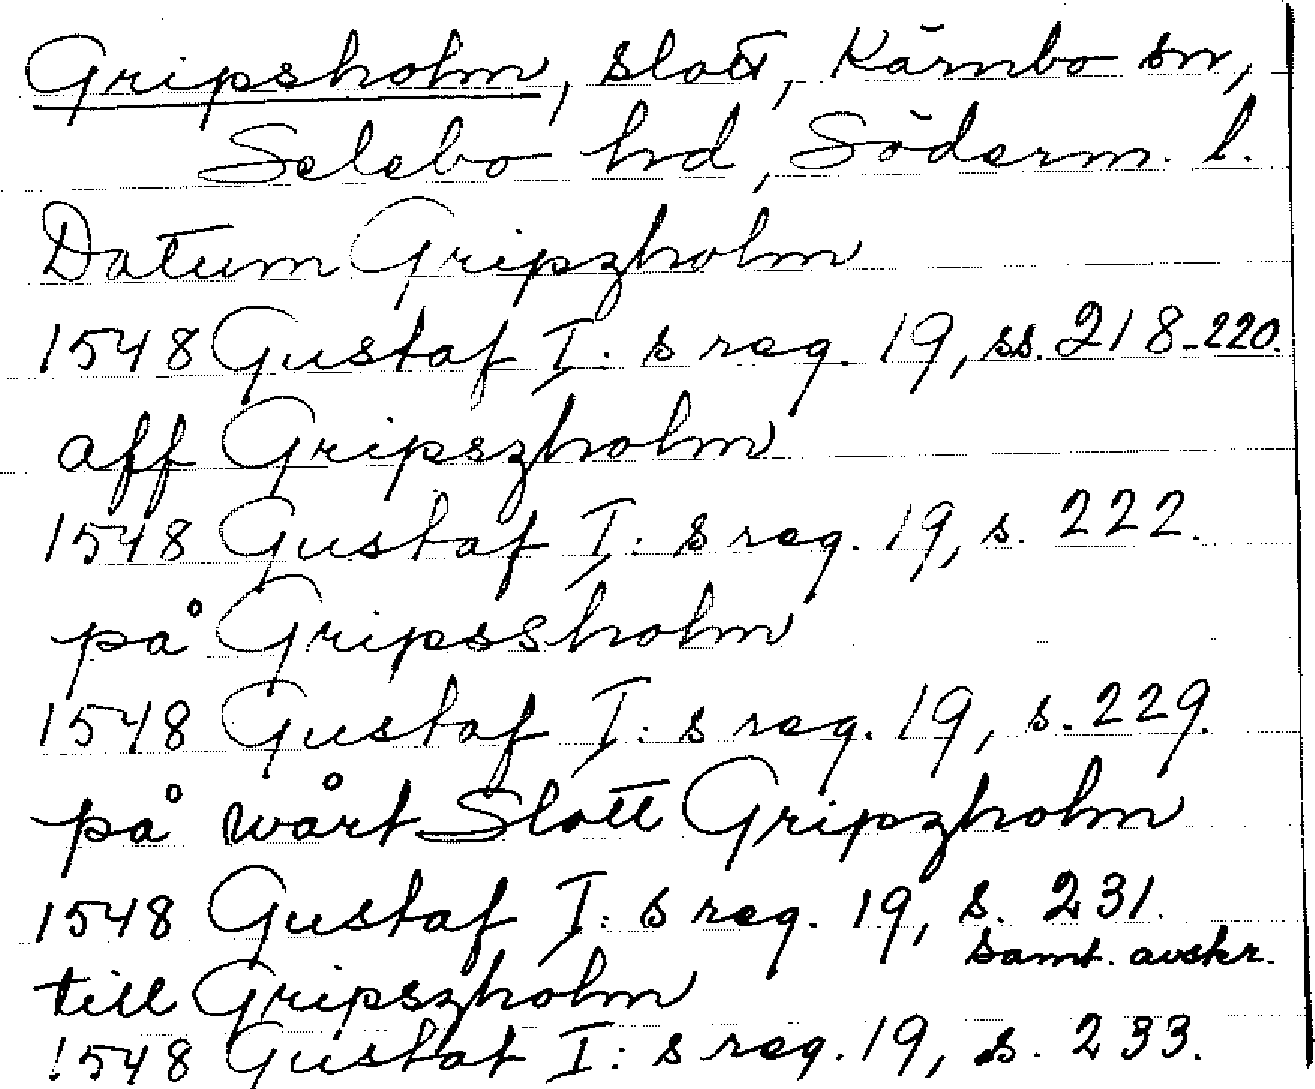 Gripsholm, slott, Kärnbo sn,
Selebo hd, Söderm. l.
Datum Gripzholm
1548 Gustaf I:s reg. 19, ss. 218-220.
aff Gripszholm
1548 Gustaf I:s reg. 19, s. 222.
på Gripssholm
1548 Gustaf I:s reg. 19, s. 229.
på wårt Slott Gripzholm
1548 Gustaf I:s reg. 19, s. 231.
samt. avskr.
till Gripszholm
1548 Gustaf I:s reg. 19, s. 233.